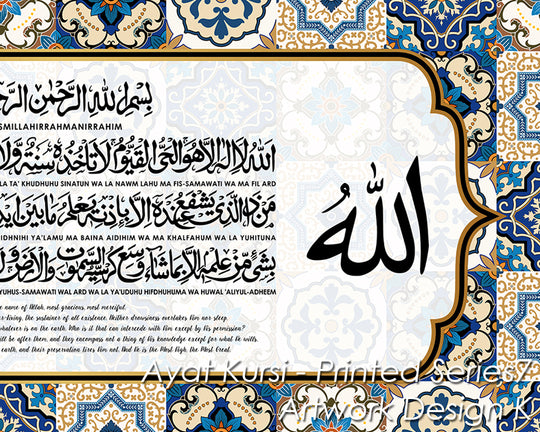 بسم الله الرحمن
SMILLAHIRRAHMANIRRAHIM
الله لا اله الا هو الحي القيوم لا تاخذه سنة ولا
LA TA' KHUDHUHU SINATUN WA LA NAWM LAHU MA FIS-SAMAWATI WA MA FIL ARD
من ذا الذي يشفع عنده الا باذنه يعلم ما بين
IDHNIHI YA'LAMU MA BAINA AIDIHIM WA MA KHALFAHUM WA LA YUHITUNA
بشيء من علمه الا بما شاء وسع كرسيه السموت والارض
YUHUS-SAMAWATI WAL ARD WA LA YA'UDUHU HIFDHUHUMA WA HUWAL 'ALIYUL-ADHEEM
name of Allah, most gracious, most merciful.
-living, the sustainer of all existence. Neither drowsiness overtakes Him nor sleep.
whatever is on the earth. Who is it that can intercede with Him except by His permission?
will be after them, and they encompass not a thing of His knowledge except for what He wills.
earth, and their preservation tires Him not. And He is the Most High, the Most Great.
الله
Ayat Kursi - Printed Series7
Artwork Design K